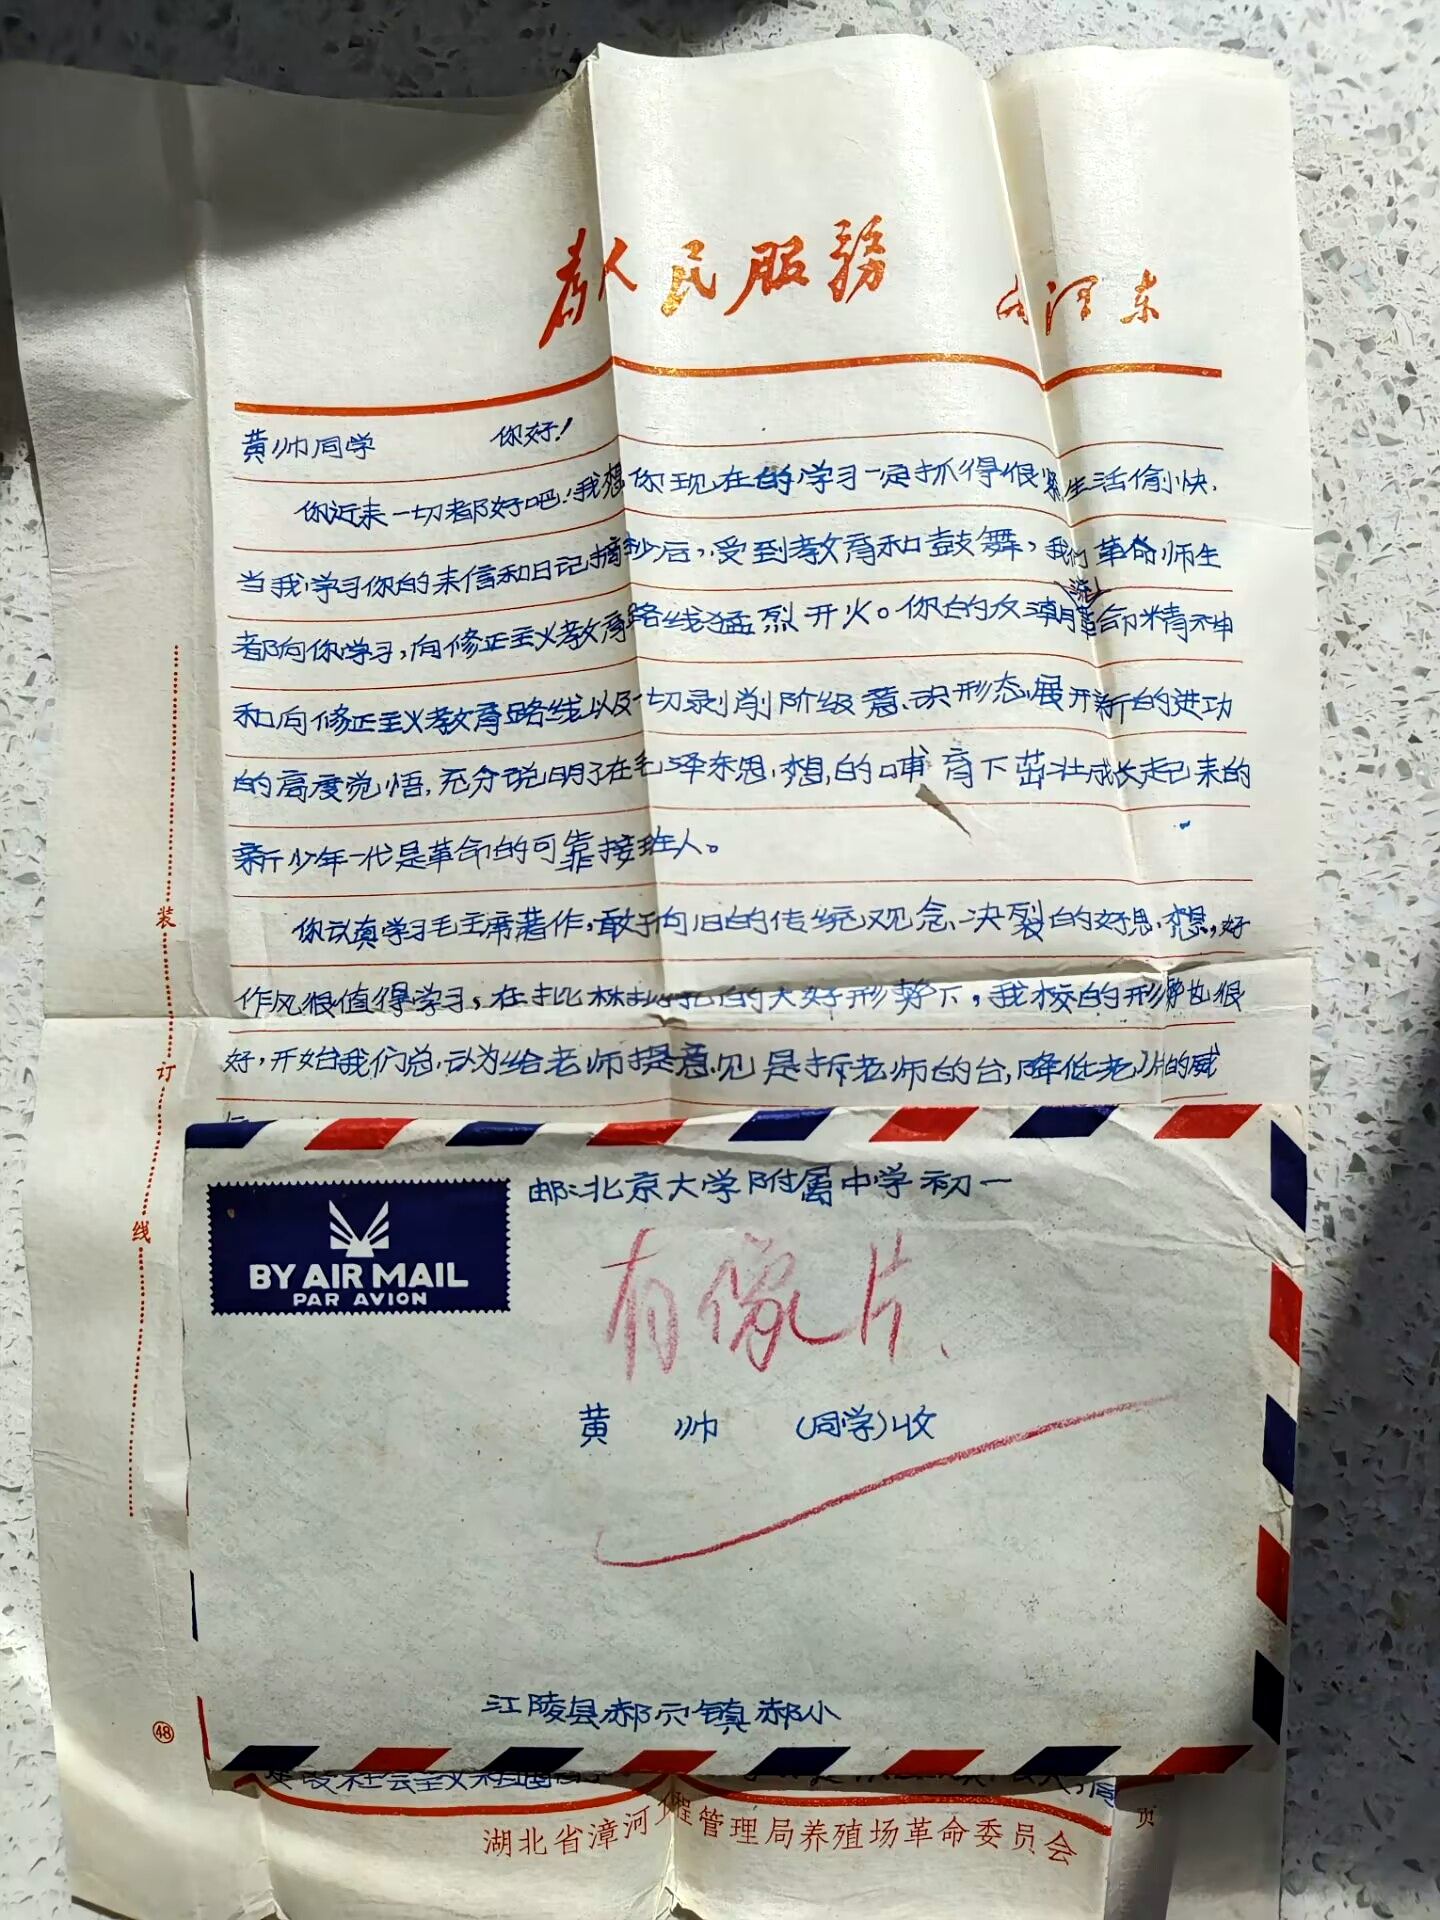 为人民服务 毛泽东
黄帅同学 你好!
你近来一切都好吧!我想你现在的学习一定抓得很紧生活愉快.
当我学习你的来信和日记摘抄后,受到教育和鼓舞,我们革命师生
都向你学习,向修正主义教育路线猛烈开火。你的反潮流革命精神
和向修正主义教育路线以及一切剥削阶级意识形态展开新的进功
的高度觉悟,充分说明了在毛泽东思想的哺育下茁壮成长起来的
新少年一代是革命的可靠接班人。
你认真学习毛主席著作,敢于向旧的传统观念决裂的好思想,好
作风很值得学习,在批林批孔的大好形势下,我校的形势也很
好,开始我们总认为给老师提意见是拆老师的台,降低老师的威
装订线
BY AIR MAIL
PAR AVION
邮:北京大学附属中学初一
有像片、
黄帅(同学)收
江陵县郝穴镇郝小
48
社会主义祖国
页
湖北省漳河工程管理局养殖场革命委员会